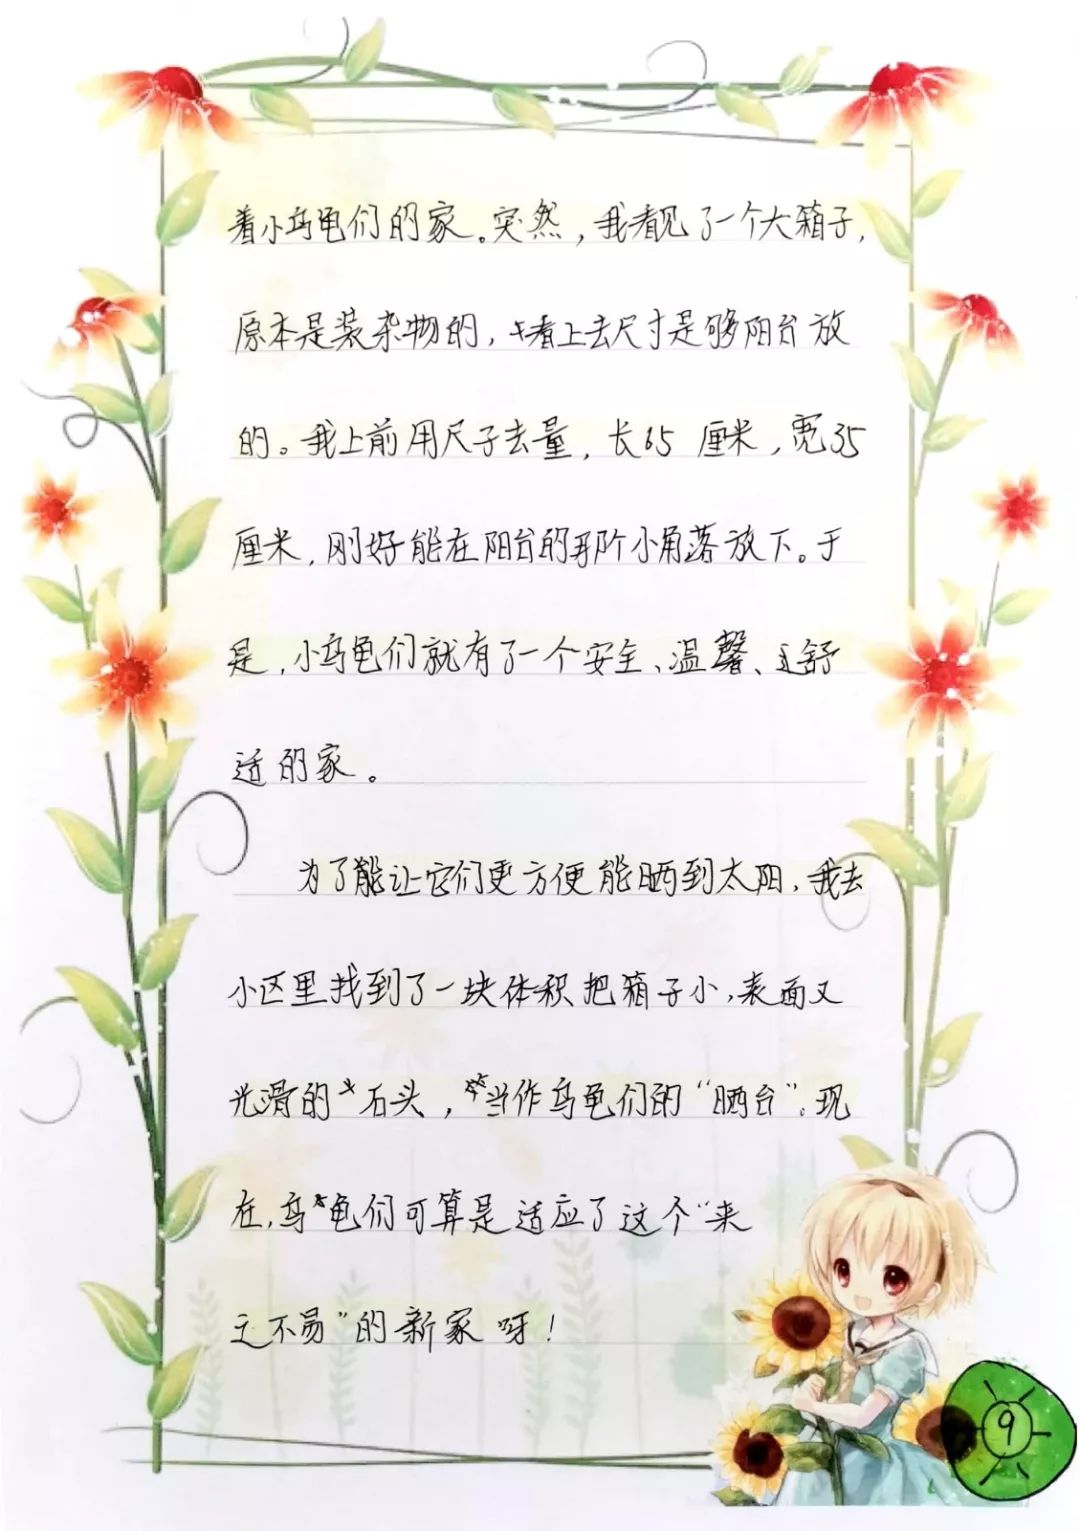 着小乌龟们的家。突然，我看见了一个大箱子，
原本是装杂物的，看上去尺寸是够阳台放
的。我上前用尺子去量，长65厘米，宽35
厘米，刚好能在阳台的那个小角落放下。于
是，小乌龟们就有了一个安全、温馨、舒
适的家。
为了能让它们更方便能晒到太阳，我去
小区里找到了一块体积把箱子小，表面又
光滑的石头，当作乌龟们的“晒台”。现
在，乌龟们可算是适应了这个“来
之不易”的新家呀！
9